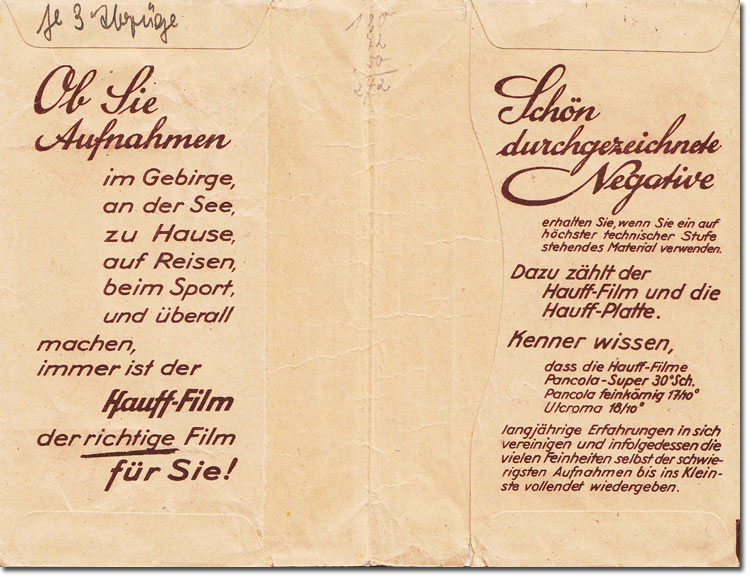 je 3 Abzüge
Ob Sie
Aufnahmen
im Gebirge,
an der See,
zu Hause,
auf Reisen,
beim Sport,
und überall
machen,
immer ist der
Hauff-Film
der richtige Film
für Sie!
272
Schön
durchgezeichnete
Negative
erhalten Sie, wenn Sie ein auf
höchster technischer Stufe
stehendes Material verwenden.
Dazu zählt der
Hauff-Film und die
Hauff-Platte.
Kenner wissen,
dass die Hauff-Filme
Pancola-Super 30°Sch.
Pancola feinkörnig 17/10°
Ulcroma 18/10°
langjährige Erfahrungen in sich
vereinigen und infolgedessen die
vielen Feinheiten selbst der schwie-
rigsten Aufnahmen bis ins Klein-
ste vollendet wiedergeben.